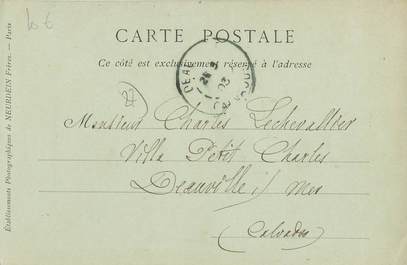 CARTE POSTALE
Ce côté est exclusivement réservé à l'adresse
Monsieur Charles Lechevallier
Villa Petit Charles
Deauville s/ mer
(Calvados)
Etablissements Photographiques de NEURDEIN Frères. — Paris